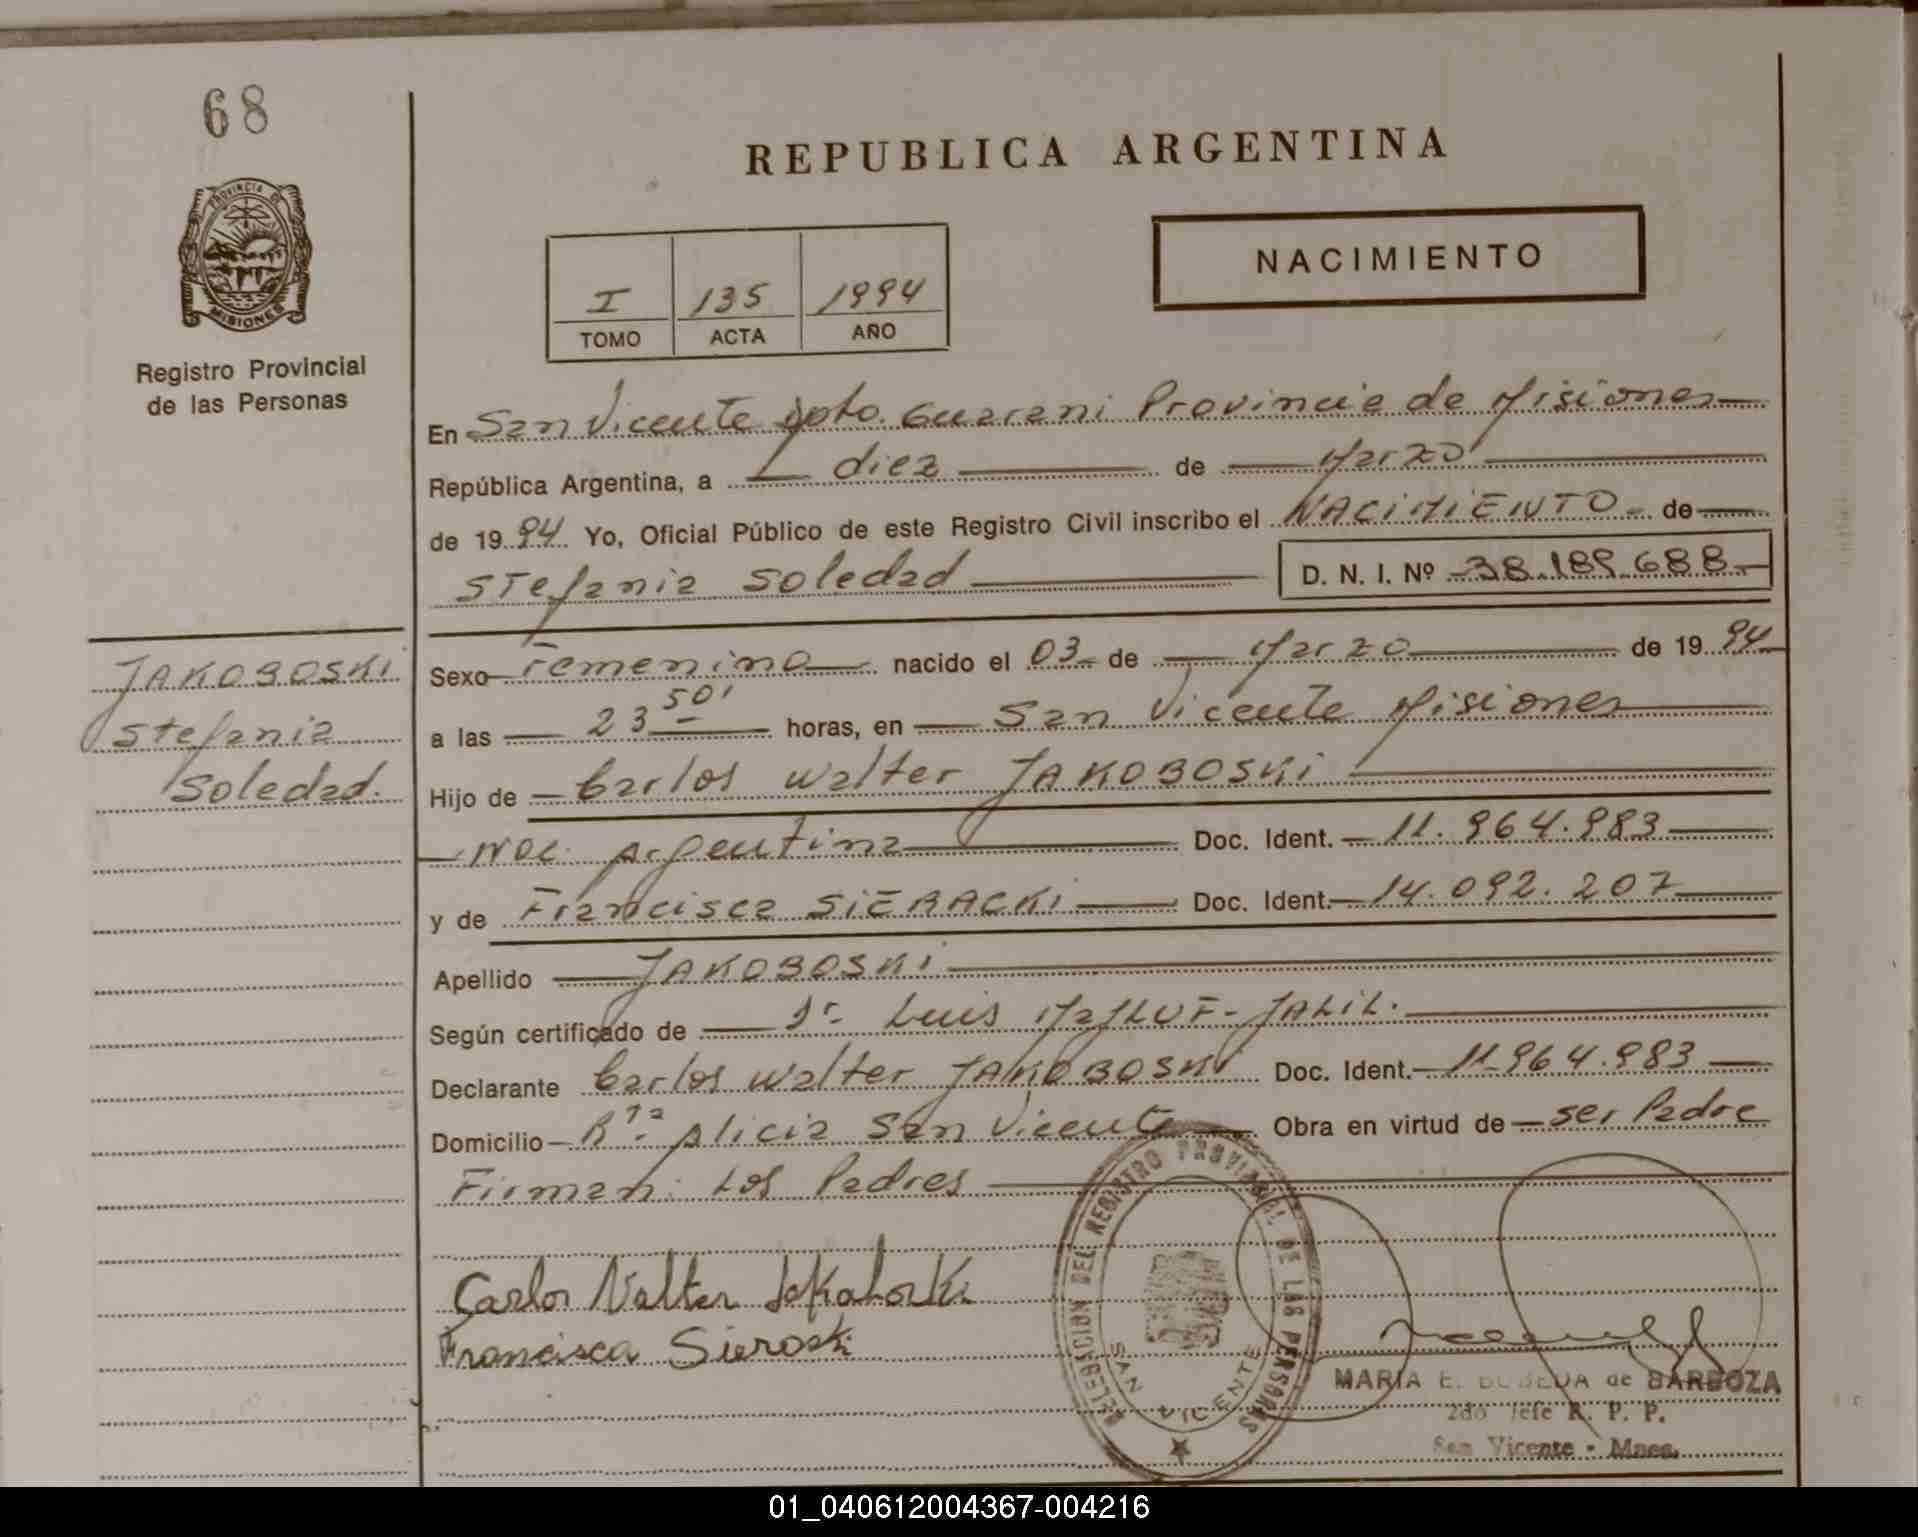 68
REPUBLICA ARGENTINA
PROVINCIA DE
MISIONES
Registro Provincial
de las Personas
I 135 1994
TOMO ACTA AÑO
NACIMIENTO
En San Vicente Dpto. Guarani Provincia de Misiones
República Argentina, a diez de Marzo
de 1994 Yo, Oficial Público de este Registro Civil inscribo el NACIMIENTO de
Stefania Soledad D. N. I. Nº 38.189.688
JAKOBOSKI
Stefania
Soledad.
Sexo Femenino nacido el 03 de Marzo de 1994
a las 23 50' horas, en San Vicente Misiones
Hijo de Carlos Walter JAKOBOSKI
Nac. Argentina Doc. Ident. 11.964.983
y de Francisca SIERACKI Doc. Ident. 14.092.207
Apellido JAKOBOSKI
Según certificado de Dr. Luis JALIL.
Declarante Carlos Walter JAKOBOSKI Doc. Ident. 11.964.983
Domicilio Alicia San Vicente Obra en virtud de ser Padre
Firman: Los Padres
Carlos Walter Jakoboski
Francisca Sieroski
DELEGACION DEL REGISTRO PROVINCIAL DE LAS PERSONAS
SAN VICENTE
MARIA E. de BARBOZA
2do Jefe R. P. P.
San Vicente - Mnes.
01_040612004367-004216